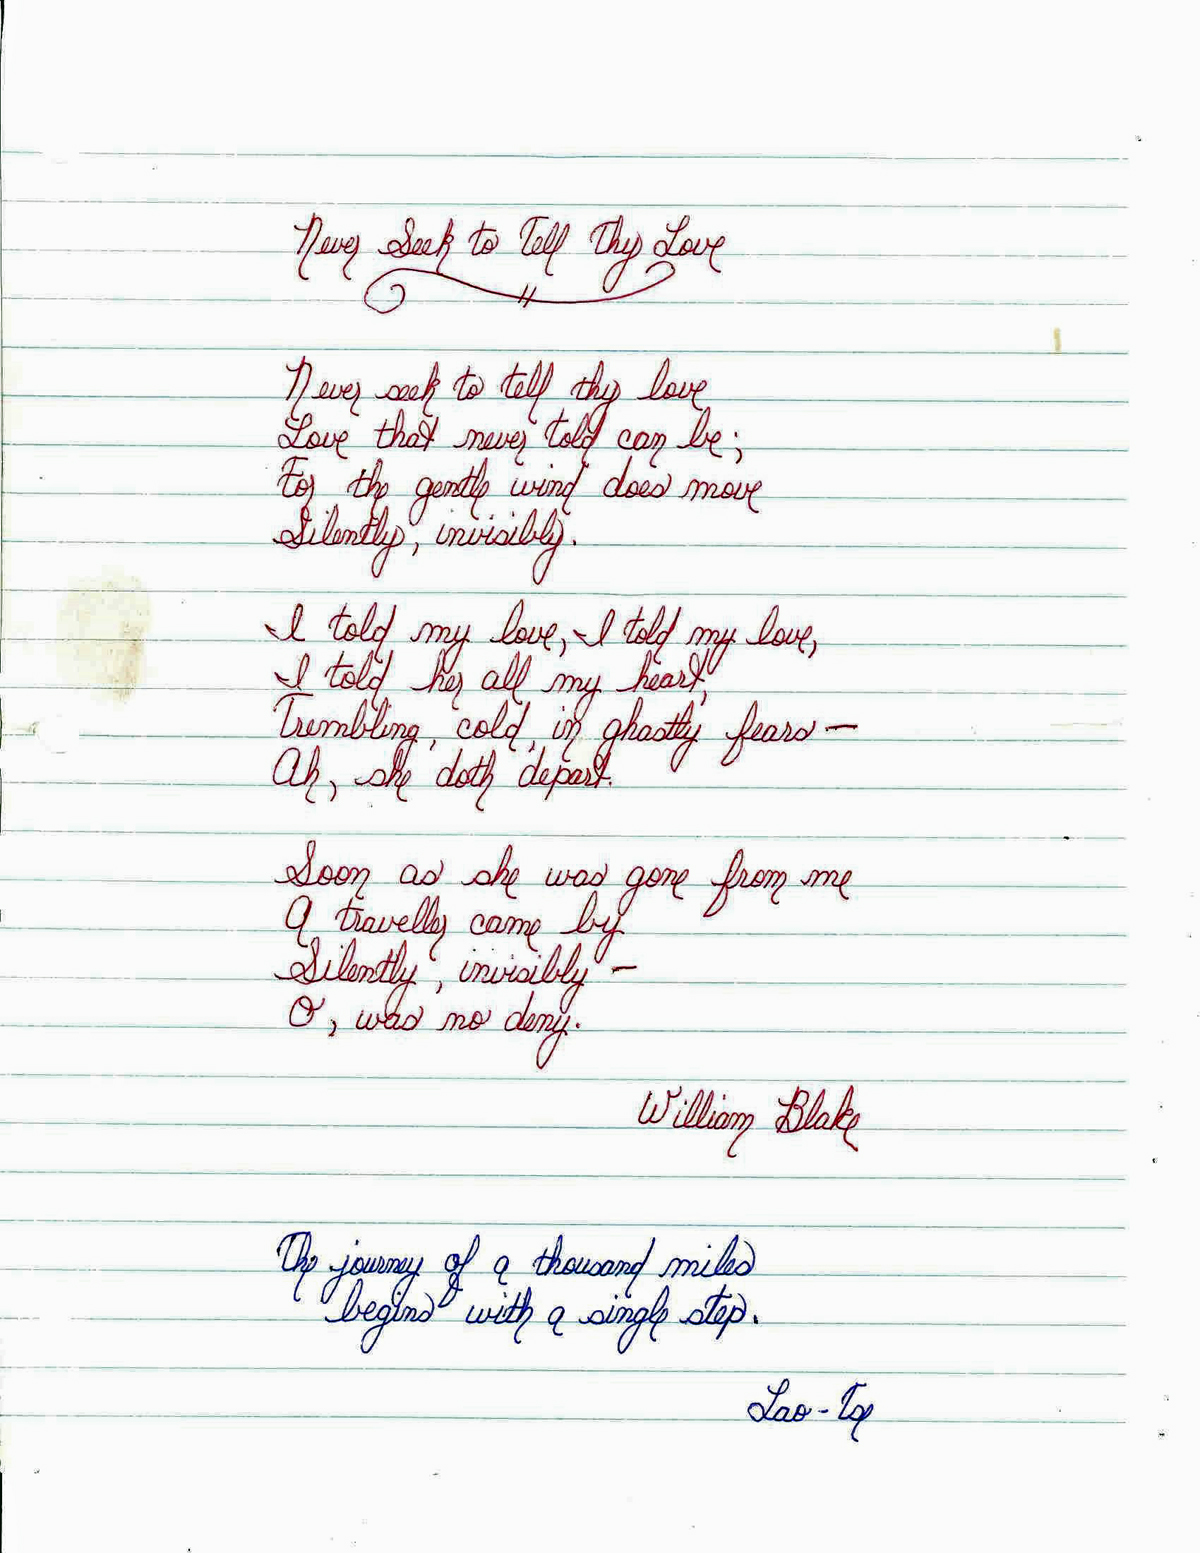 Never Seek to Tell Thy Love
Never seek to tell thy love
Love that never told can be;
For the gentle wind does move
Silently, invisibly.
I told my love, I told my love,
I told her all my heart,
Trembling, cold, in ghastly fears —
Ah, she doth depart.
Soon as she was gone from me
A traveller came by
Silently, invisibly —
O, was no deny.
William Blake
The journey of a thousand miles
begins with a single step.
Lao-Tse